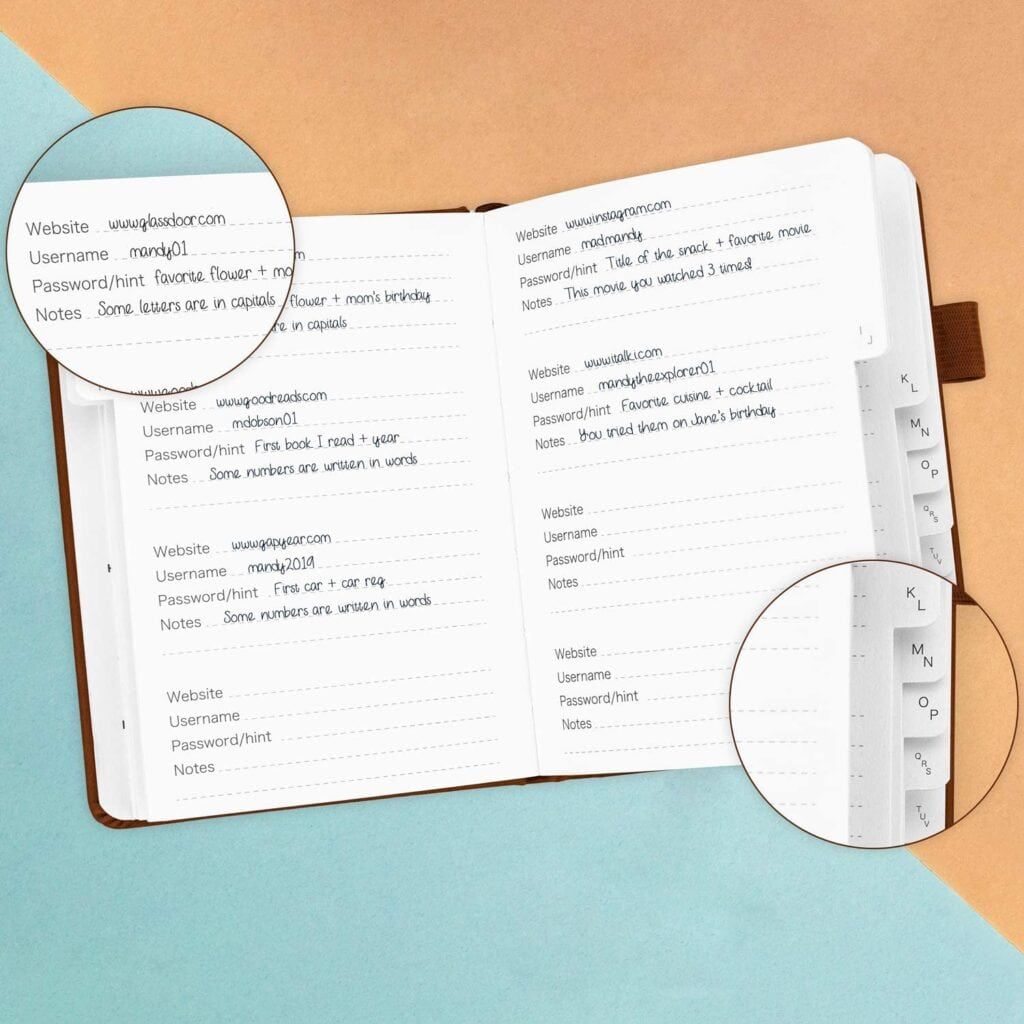 Website www.glassdoor.com
Username mandy01
Password/hint favorite flower + mo
Notes Some letters are in capitals
m
flower + mom's birthday
are in capitals
www.goodreads.com
Website www.goodreads.com
Username mdobson01
Password/hint First book I read + year
Notes Some numbers are written in words
Website www.gapyear.com
Username mandy2019
Password/hint First car + car reg
Notes Some numbers are written in words
Website
Username
Password/hint
Notes
Website www.instagram.com
Username madmandy
Password/hint Title of the snack + favorite movie
Notes This movie you watched 3 times!
Website www.italki.com
Username mandytheexplorer01
Password/hint Favorite cuisine + cocktail
Notes You tried them on Jane's birthday
Website
Username
Password/hint
Notes
Website
Username
Password/hint
Notes
I J
K L
M N
O P
Q R S
T U V
K L
M N
O P
Q R S
T U V